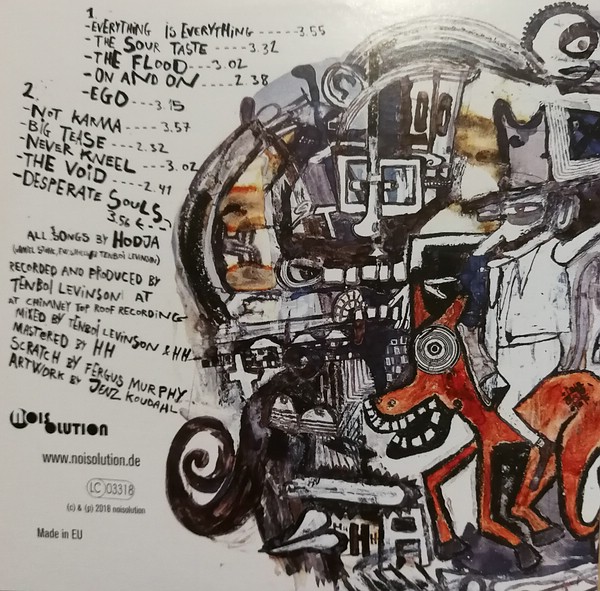 1
-EVERYTHING IS EVERYTHING ------3.55
-THE SOUR TASTE ----3.32
-THE FLOOD---3.02
-ON AND ON ---2.38
-EGO---3.15
2
-NOT KARMA----3.57
-BIG TEASE---2.32
-NEVER KNEEL ----3.02
-THE VOID----2.41
-DESPERATE SOULS
3.56
ALL SONGS BY HODJA
TENBOI LEVINSON)
RECORDED AND PRODUCED BY
TENBOI LEVINSON AT
AT CHIMNEY TOP ROOF RECORDING
MIXED BY TENBOI LEVINSON & HH
MASTERED BY HH
SCRATCH BY FERGUS MURPHY
ARTWORK BY JENZ KOUDAHL
NOISOLUTION
www.noisolution.de
LC 03318
(c) & (p) 2018 noisolution
Made in EU